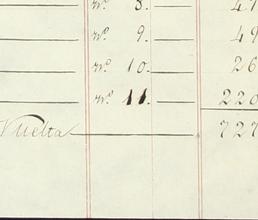 nº 8. 47
nº 9. 49
nº 10. 26
nº 11. 220
Vuelta 727